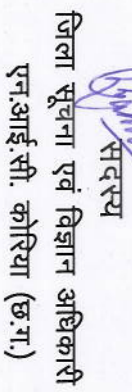 सदस्य
जिला सूचना एवं विज्ञान अधिकारी
एन.आई.सी. कोरिया (छ.ग.)